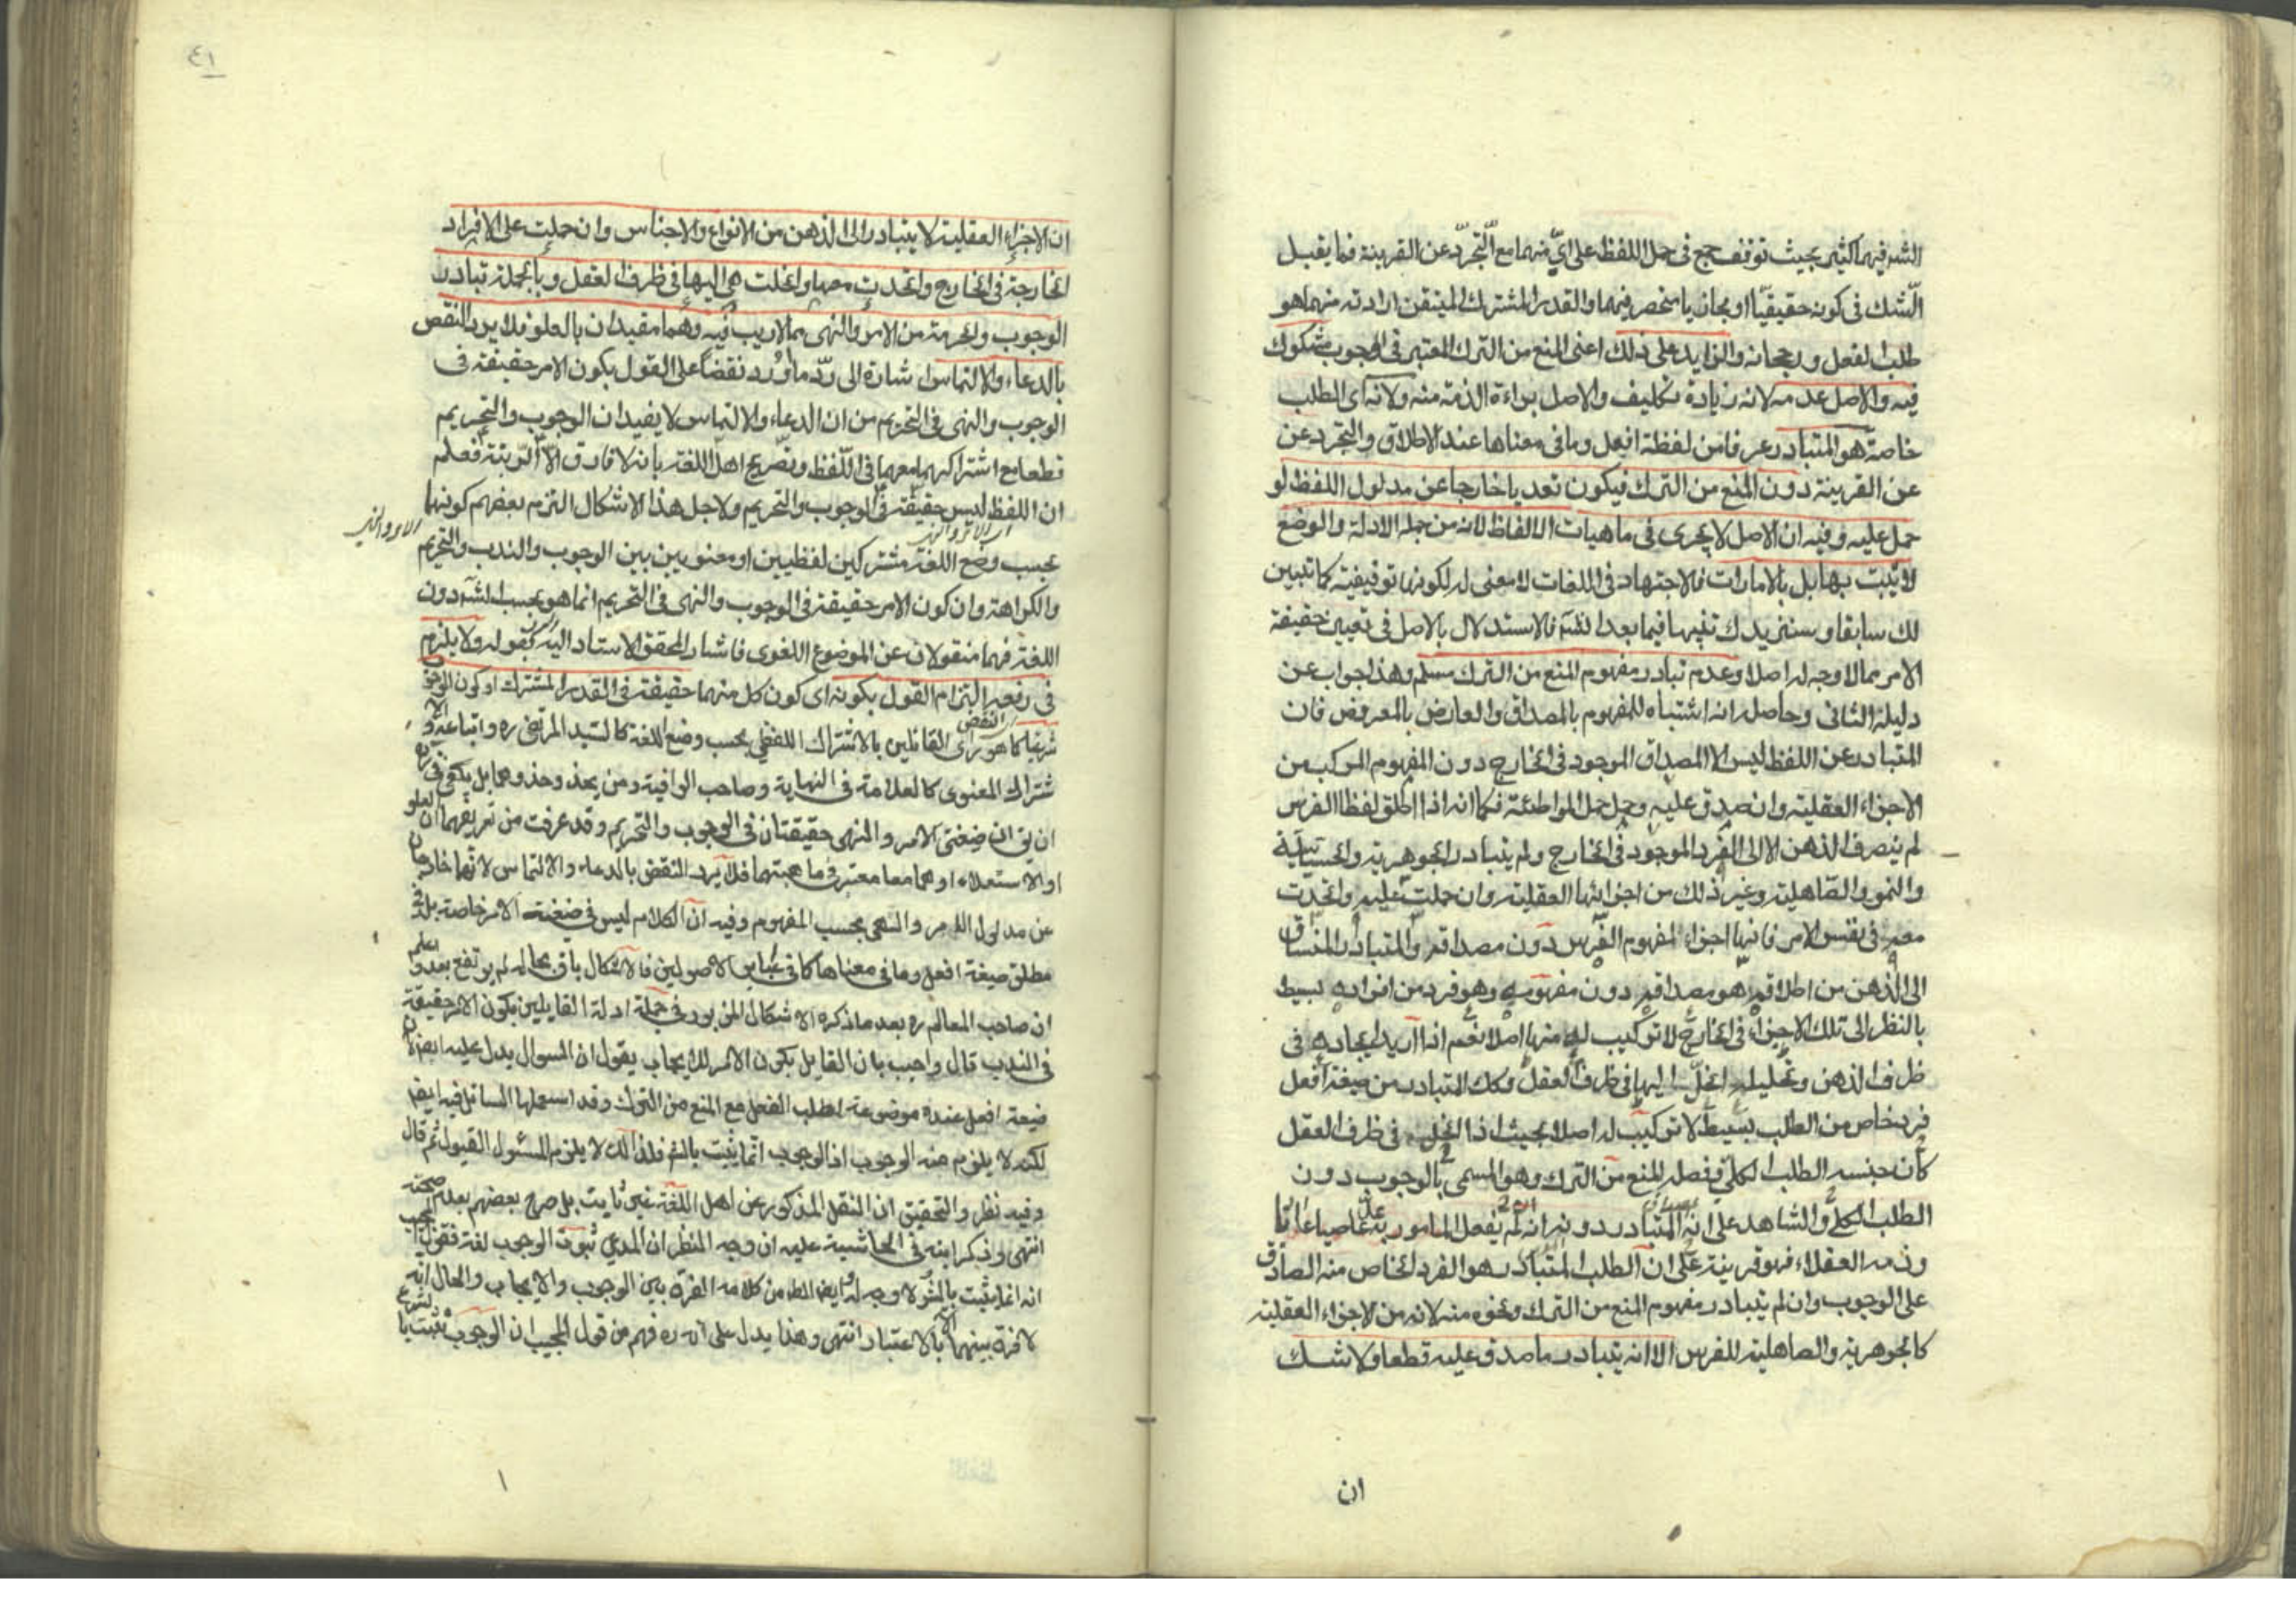 الشرع فيهما كثير بحيث توقف جمع في حمل اللفظ على أيّ منهما مع التّجرّد عن القرينة فما يقبل
الشك في كونه حقيقيّا او مجازيا منحصر فيهما والقدر المشترك المتيقن ارادته منهما هو
طلب الفعل ورجحانه والزايد على ذلك اعنى المنع من الترك المعتبر في الوجوب مشكوك
فيه والاصل عدمه لانه زيادة تكليف والاصل براءة الذمة منه ولانه اى الطلب
خاصة هو المتبادر عرفا من لفظة افعل وما في معناها عند الاطلاق والتجرد عن
عن القرينة دون المنع من الترك فيكون تعديا خارجا عن مدلول اللفظ لو
حمل عليه وفيه ان الاصل لا يجرى في ماهيات الالفاظ لانه من جملة الادلة والوضع
لا يثبت بها بل بالامارات فالاجتهاد في اللغات لا معنى له لكونها توقيفية كما تبين
لك سابقا وسنزيدك تنبيها فيما بعد انشآء فالاستدلال بالاصل في تعيين حقيقة
الامر مما لا وجه له اصلا وعدم تبادر مفهوم المنع من الترك مسلم وهذا جواب عن
دليله الثاني وحاصله انه اشتباه للمفهوم بالمصداق والعارض بالمعروض فان
المتبادر عن اللفظ ليس الا المصداق الموجود في الخارج دون المفهوم المركب من
الاجزاء العقلية وان صدق عليه وحمل حمل المواطئة فكما انه اذا اطلق لفظ الفرس
لم ينصرف الذهن الا الى الفرد الموجود في الخارج ولم يتبادر الجوهرية والحساسية
والنمو والصاهلية وغير ذلك من اجزائها العقلية وان حملت عليه واتحدت
معه في نفس الامر فانها اجزاء لمفهوم الفرس دون مصداقه والمتبادر المنساق
الى الذهن من اطلاقه هو مصداقه دون مفهومه وهو فرد من افراده بسيط
بالنظر الى تلك الاجزاء في الخارج لا تركيب له منها اصلا نعم اذا اريد ايجاده في
ظرف الذهن وتحليله انحلّ اليها في ظرف العقل وكك المتبادر من صيغة افعل
فرد خاص من الطلب بسيط لا تركيب له اصلا بحيث اذا انحل في ظرف العقل
كان جنسه الطلب الكلي وفصله المنع من الترك وهو المسمى بالوجوب دون
الطلب الكلي والشاهد على انه المتبادر دونه انه لم يفعل المامور به عد عاصيا عاتيا
وذمه العقلاء فهو قرينة على ان الطلب المتبادر هو الفرد الخاص منه الصادق
على الوجوب وان لم يتبادر مفهوم المنع من الترك ونحوه منه لانه من الاجزاء العقلية
كالجوهرية والصاهلية للفرس الا انه يتبادر ما صدق عليه قطعا ولا شك
ان
٤١
ان الاجزاء العقلية لا يتبادر الى الذهن من الانواع والاجناس وان حملت على الافراد
الخارجة في الخارج واتحدت معها وانحلت هى اليها في ظرف العقل وبالجملة تبادر
الوجوب والحرمة من الامر والنهى مما لا ريب فيه وهما مقيدان بالعلو فلا يرد النقض
بالدعاء والالتماس اشارة الى ردّ ما أورد نقضا على القول بكون الامر حقيقة في
الوجوب والنهى في التحريم من ان الدعاء والالتماس لا يفيدان الوجوب والتحريم
قطعا مع اشتراكهما معهما في اللّفظ وتصريح اهل اللغة بان لا فارق الا الرتبة فعلم
ان اللفظ ليس حقيقة في الوجوب والتحريم ولاجل هذا الاشكال التزم بعضهم كونهما
اى الامر والنهى
الامر والنهى
بحسب وضع اللغة مشتركين لفظيين او معنويين بين الوجوب والندب والتحريم
والكراهة وان كون الامر حقيقة في الوجوب والنهى في التحريم انما هو بحسب الشرع دون
اللغة فهما منقولان عن الموضوع اللغوى فاشار المحقق الاستاد اليه بقوله ولا يلزم
في رفعه التزام القول بكونه اى كون كل منهما حقيقة في القدر المشترك او كون الوجوب
النقض
شرعيا كما هو رأى القائلين بالاشتراك اللفظى بحسب وضع اللغة كالسيد المرتضى ره واتباعه والا
شتراك المعنوى كالعلامة في النهاية وصاحب الوافية ومن يحذو حذوهما بل يكفى في
ان يق ان صيغتى الامر والنهى حقيقتان في الوجوب والتحريم وقد عرفت من تعريفهما ان العلو
او الاستعلاء او هما معا معتبر في ماهيتهما فلا يرد النقض بالدعاء والالتماس لانهما خارجان
عن مدلول الامر والنهى بحسب المفهوم وفيه ان الكلام ليس في صيغة الامر خاصة بل في
مطلق صيغة افعل وما في معناها كما في عباير الاصوليين فالاشكال باق بحاله لم يرتفع بعد واعلم
ان صاحب المعالم ره بعد ما ذكره الاشكال المزبور في جملة ادلة القايلين بكون الامر حقيقة
في الندب قال واجيب بان القايل بكون الامر للايجاب يقول ان السوال يدل عليه ايضا لان
صيغة افعل عنده موضوعة لطلب الفعل مع المنع من الترك وقد استعملها السائل فيه ايضا
لكنه لا يلزم منه الوجوب اذ الوجوب انما يثبت بالشرع فلذلك لا يلزم المسئول القبول ثم قال
وفيه نظر والتحقيق ان النقل المذكور عن اهل اللغة غير ثابت بل صرح بعضهم بعدم صحته
انتهى وذكر ابنه في الحاشية عليه ان وجه النظر ان المدعى ثبوت الوجوب لغة فقول المجيب
انه انما يثبت بالشرع لا وجه له وايضا الظ من كلامه الفرق بين الوجوب والايجاب والحال انه
لا فرق بينهما الا بالاعتبار انتهى وهذا يدل على انه ره فهم من قول المجيب ان الوجوب يثبت بالشرع